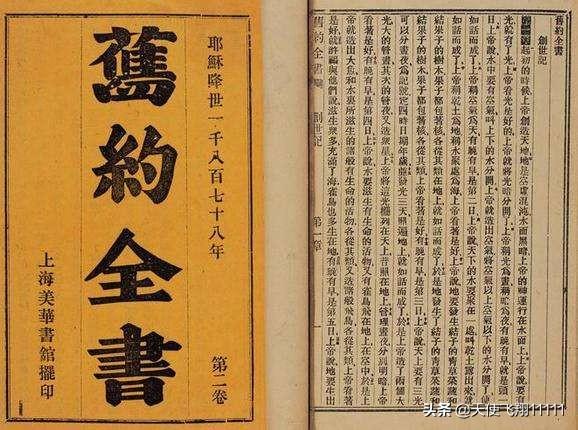 耶穌降世一千八百七十八年
第二卷
舊約全書
上海美華書館擺印
舊約全書
創世記
起初的時候上帝創造天地地是空虛混沌水面黑暗上帝的神運行在水面上上帝說要有
光就有了光上帝看光是好的上帝就將光暗分開了上帝稱光為晝稱暗為夜有晚有早就是頭一
日上帝說水中要有空氣叫上下的水分開上帝就造出空氣將空氣以上的水空氣以下的水分開了便
如話而成了上帝稱空氣為天有晚有早是第二日上帝說天下的水要聚在一處叫乾土露出來就
如話而成了上帝稱乾土為地稱水聚處為海上帝看著是好上帝說地要發生結子的青草菜蔬和
結果子的樹木果子都包著核各從其類在地上就如話而成了於是地發生了結子的青草菜蔬和
結果子的樹木果子都包著核各從其類上帝看著是好有晚有早是第三日上帝說天上要有三光
可以分晝夜為記號定四時日期年歲並發光天照遍地上就如話而成了於是上帝造了兩個大
光大的管晝其次的管夜又造眾星上帝將這光擺列在天上普照在地上管理晝夜分別明暗上帝
看著是好有晚有早是第四日上帝說水要滋生有生命的活物又有雀鳥飛在地上在空中於是上
帝就造出大魚和水裏所滋生的諸般有生命的活物各從其類又造諸般飛鳥各從其類上帝看著
是好就許福與他們說滋生眾多充滿了海雀鳥也多生在地有晚有早是第五日上帝說地
舊約全書 創世記 第一章 一
头条 @天使飞翔11111